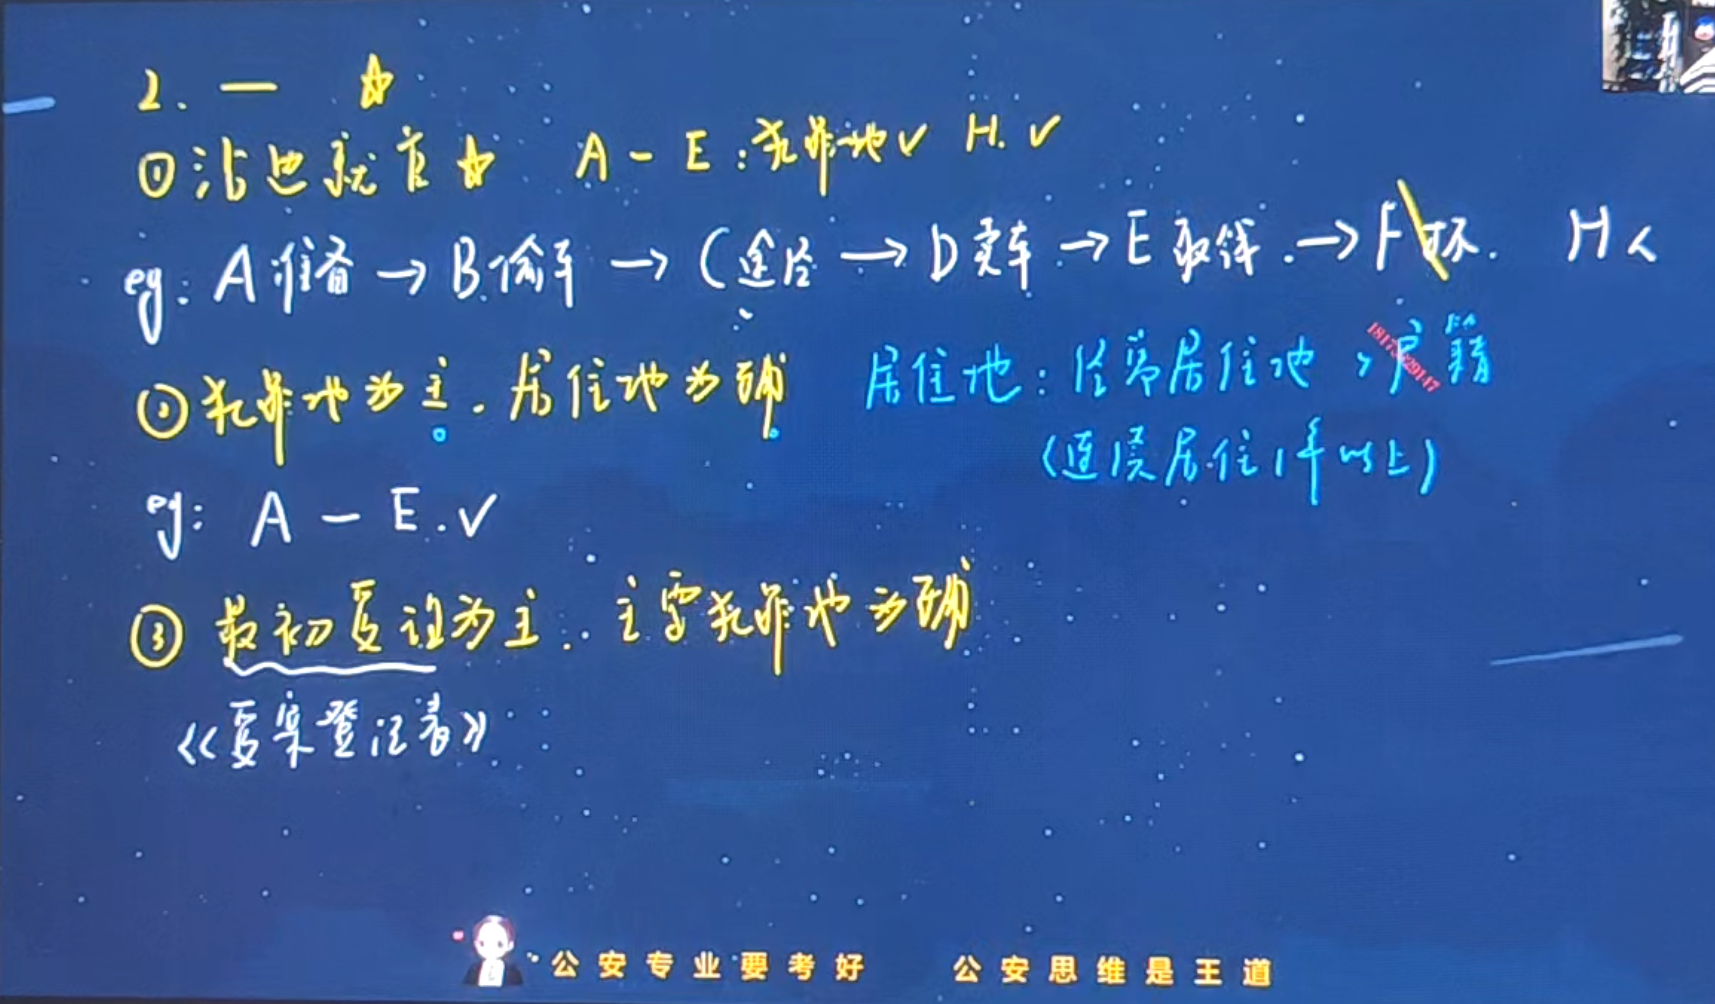 2. 一 ☆
① 沾边就管 ☆ A - E:犯罪地✓ H.✓
eg: A准备 → B.偷车 → C途径 → D卖车 → E取钱. → F 坏. H人
②犯罪地为主.居住地为辅 居住地:经常居住地 > 户籍
(连续居住1年以上)
eg: A - E.✓
③ 最初受理为主.主要犯罪地为辅
《受案登记表》
公安专业要考好 公安思维是王道